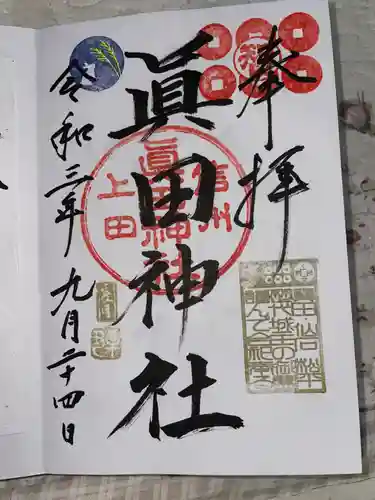 奉拝
眞田神社
信州
眞田神社
上田
令和三年九月二十四日